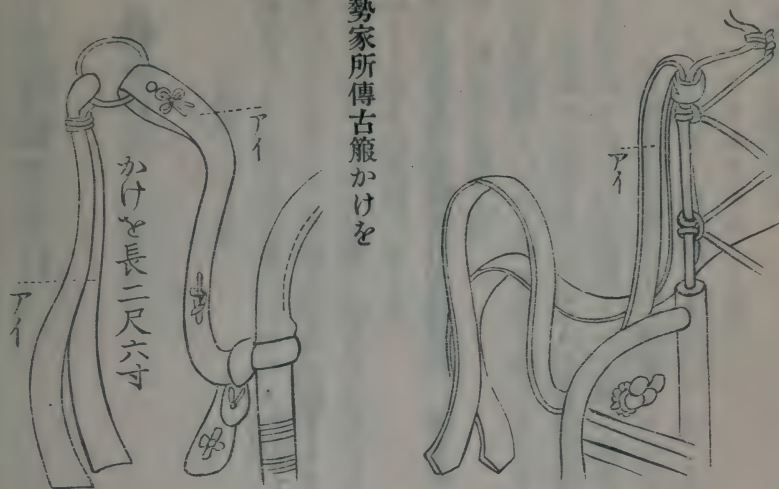 勢家所傳古箙かけを
アイ
アイ
かけを長二尺六寸
アイ